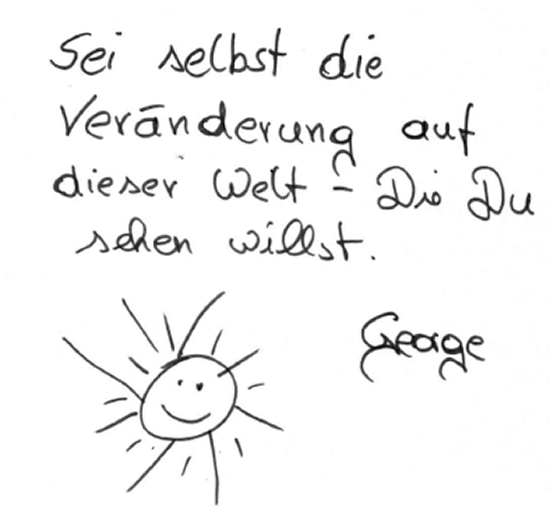 Sei selbst die
Veränderung auf
dieser Welt - Die Du
sehen willst.
George